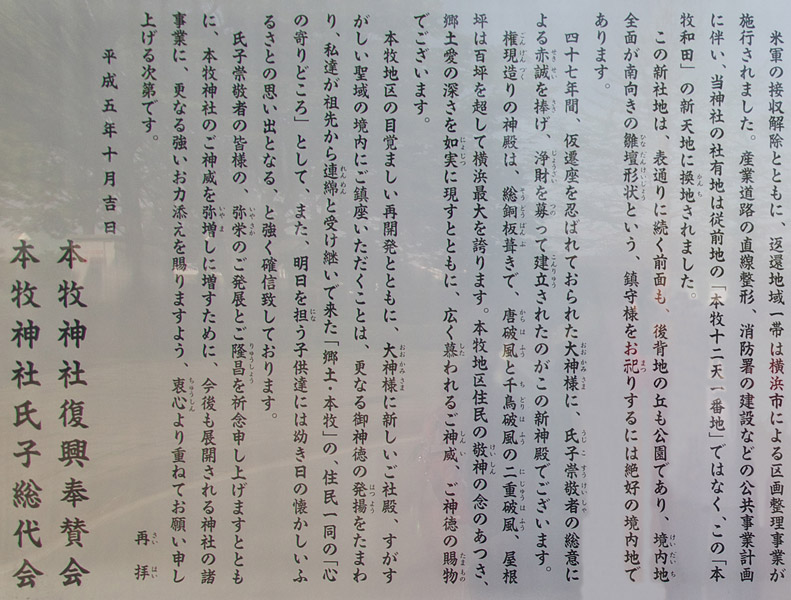 米軍の接収解除とともに、返還地域一帯は横浜市による区画整理事業が
施行されました。産業道路の直線整形、消防署の建設などの公共事業計画
に伴い、当神社の社有地は従前地の「本牧十二天一番地」ではなく、この「本
牧和田」の新天地に換地されました。
この新社地は、表通りに続く前面も、後背地の丘も公園であり、境内地
全面が南向きの雛壇形状という、鎮守様をお祀りするには絶好の境内地で
あります。
四十七年間、仮遷座を忍ばれておられた大神様に、氏子崇敬者の総意に
よる赤誠を捧げ、浄財を募って建立されたのがこの新神殿でございます。
権現造りの神殿は、総銅板葺きで、唐破風と千鳥破風の二重破風、屋根
坪は百坪を超して横浜最大を誇ります。本牧地区住民の敬神の念のあつさ、
郷土愛の深さを如実に現すとともに、広く慕われるご神威、ご神徳の賜物
でございます。
本牧地区の目覚ましい再開発とともに、大神様に新しいご社殿、すがす
がしい聖域の境内にご鎮座いただくことは、更なる御神徳の発揚をたまわ
り、私達が祖先から連綿と受け継いで来た「郷土・本牧」の、住民一同の「心
の寄りどころ」として、また、明日を担う子供達には幼き日の懐かしいふ
るさとの思い出となる、と強く確信致しております。
氏子崇敬者の皆様の、弥栄のご発展とご隆昌を祈念申し上げますととも
に、本牧神社のご神威を弥増しに増すために、今後も展開される神社の諸
事業に、更なる強いお力添えを賜りますよう、衷心より重ねてお願い申し
上げる次第です。
再拝
平成五年十月吉日
本牧神社復興奉賛会
本牧神社氏子総代会